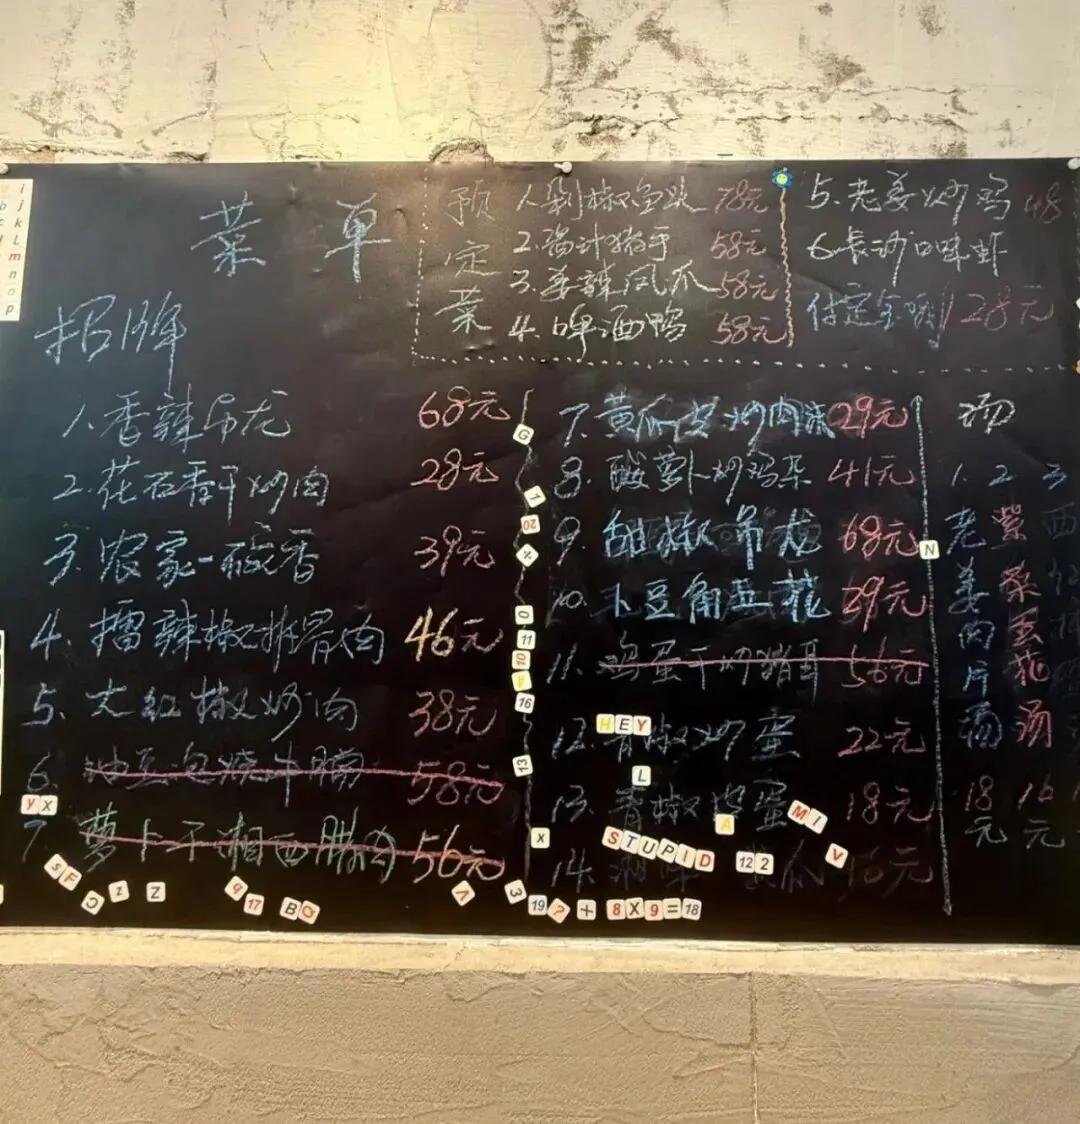 菜单
预定菜
1.剁椒鱼头 78元
2.酱汁猪手 58元
3.姜辣凤爪 58元
4.啤酒鸭 58元
5.老姜炒鸡 48
6.长沙口味虾
付定金 128元
招牌
1.香辣吊龙 68元
2.花石香干炒肉 28元
3.农家一碗香 39元
4.擂辣椒排骨肉 46元
5.大红椒炒肉 38元
6.油豆泡烧牛腩 58元
7.萝卜干湘西腊肉 56元
7.黄瓜皮炒肉沫 29元
8.酸萝卜炒鸡杂 41元
9.甜椒吊龙 68元
10.卜豆角 29元
11.鸡蛋干炒猪耳 56元
12.青椒炒蛋 22元
13.青椒皮蛋 18元
14.湘味 16元
汤
1. 老姜肉片汤 18元
2 紫菜蛋花汤 16元
3 西红柿
i j k L m n o p
HEY
L
A
MI
STUPID
12 2
V
G
1
20
%
0
11
10
16
13
X
N
Y X
S F
Z
Z
9
17
B
3
19 ? + 8 X 9 = 18